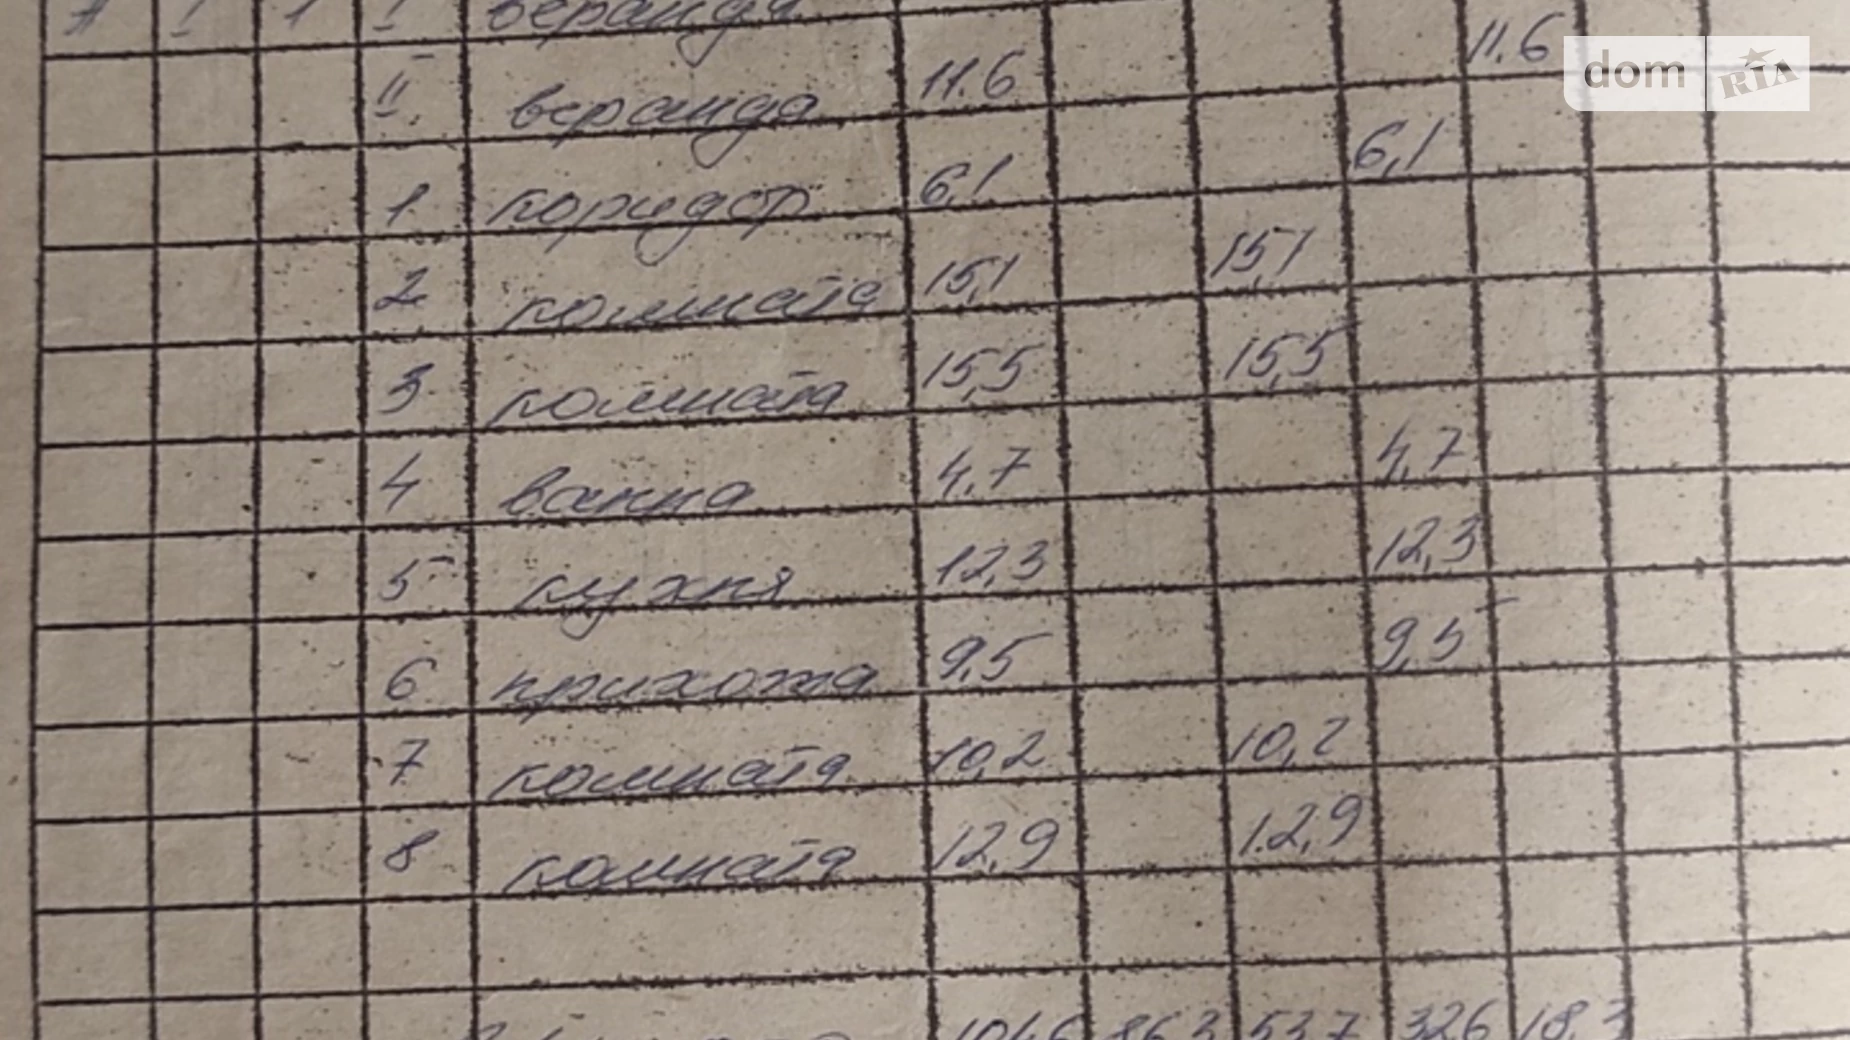 А I 1 I веранда
II веранда 11.6 11.6
1 коридор 6,1 6,1
2 комната 15,1 15,1
3 комната 15,5 15,5
4 ванна 4,7 4,7
5 кухня 12,3 12,3
6 прихожа 9,5 9,5
7 комната 10,2 10,2
8 комната 12,9 12,9
104.6 86.3 53.7 32.6 18.3
dom RIA